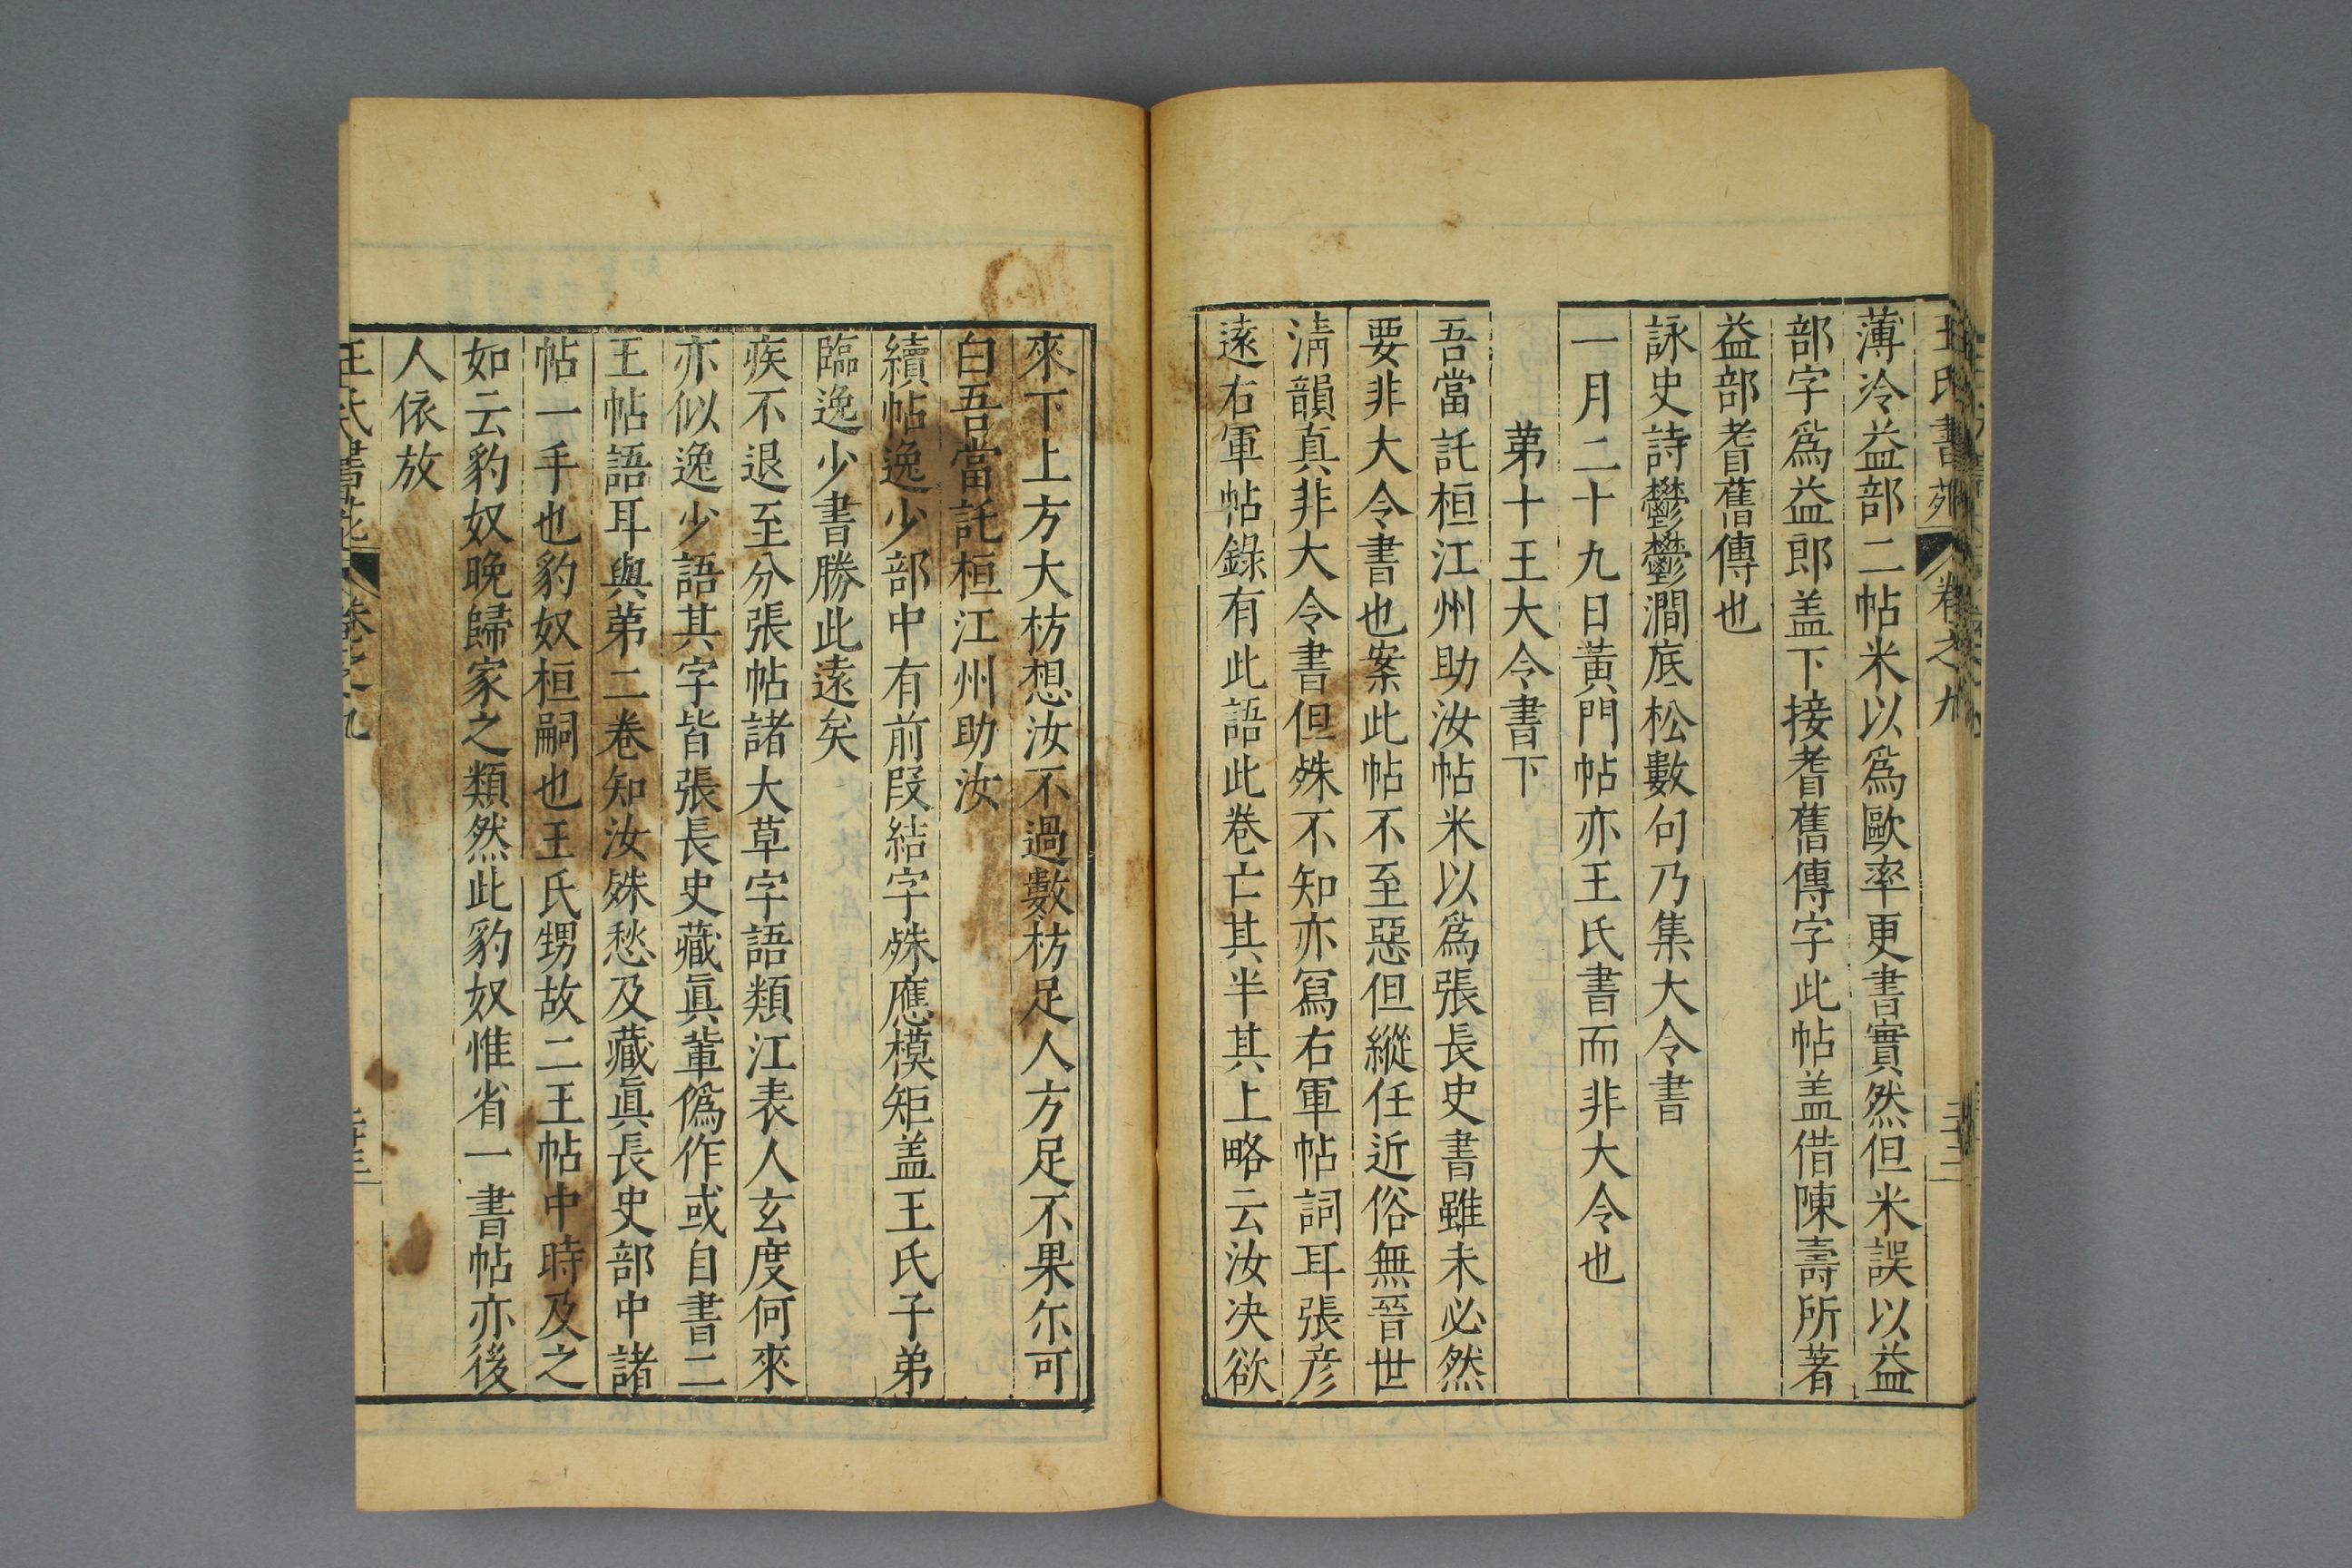 王氏書苑 卷之九
薄冷益部二帖米以爲歐率更書實然但米誤以益
部字爲益郎盖下接耆舊傳字此帖盖借陳壽所著
益部耆舊傳也
詠史詩鬱鬱澗底松數句乃集大令書
一月二十九日黄門帖亦王氏書而非大令也
苐十王大令書下
吾當託桓江州助汝帖米以爲張長史書雖未必然
要非大令書也案此帖不至惡但縱任近俗無晉世
淸韻真非大令書但殊不知亦冩右軍帖詞耳張彦
遠右軍帖錄有此語此卷亡其半其上略云汝决欲
來下上方大枋想汝不過數枋足人方足不果尓可
白吾當託桓江州助汝
續帖逸少部中有前叚結字殊應模矩盖王氏子弟
臨逸少書勝此遠矣
疾不退至分張帖諸大草字語類江表人玄度何來
亦似逸少語其字皆張長史藏眞輩僞作或自書二
王帖語耳與苐二卷知汝殊愁及藏眞長史部中諸
帖一手也豹奴桓嗣也王氏甥故二王帖中時及之
如云豹奴晩歸家之類然此豹奴惟省一書帖亦後
人依放
王氏書苑 卷之九